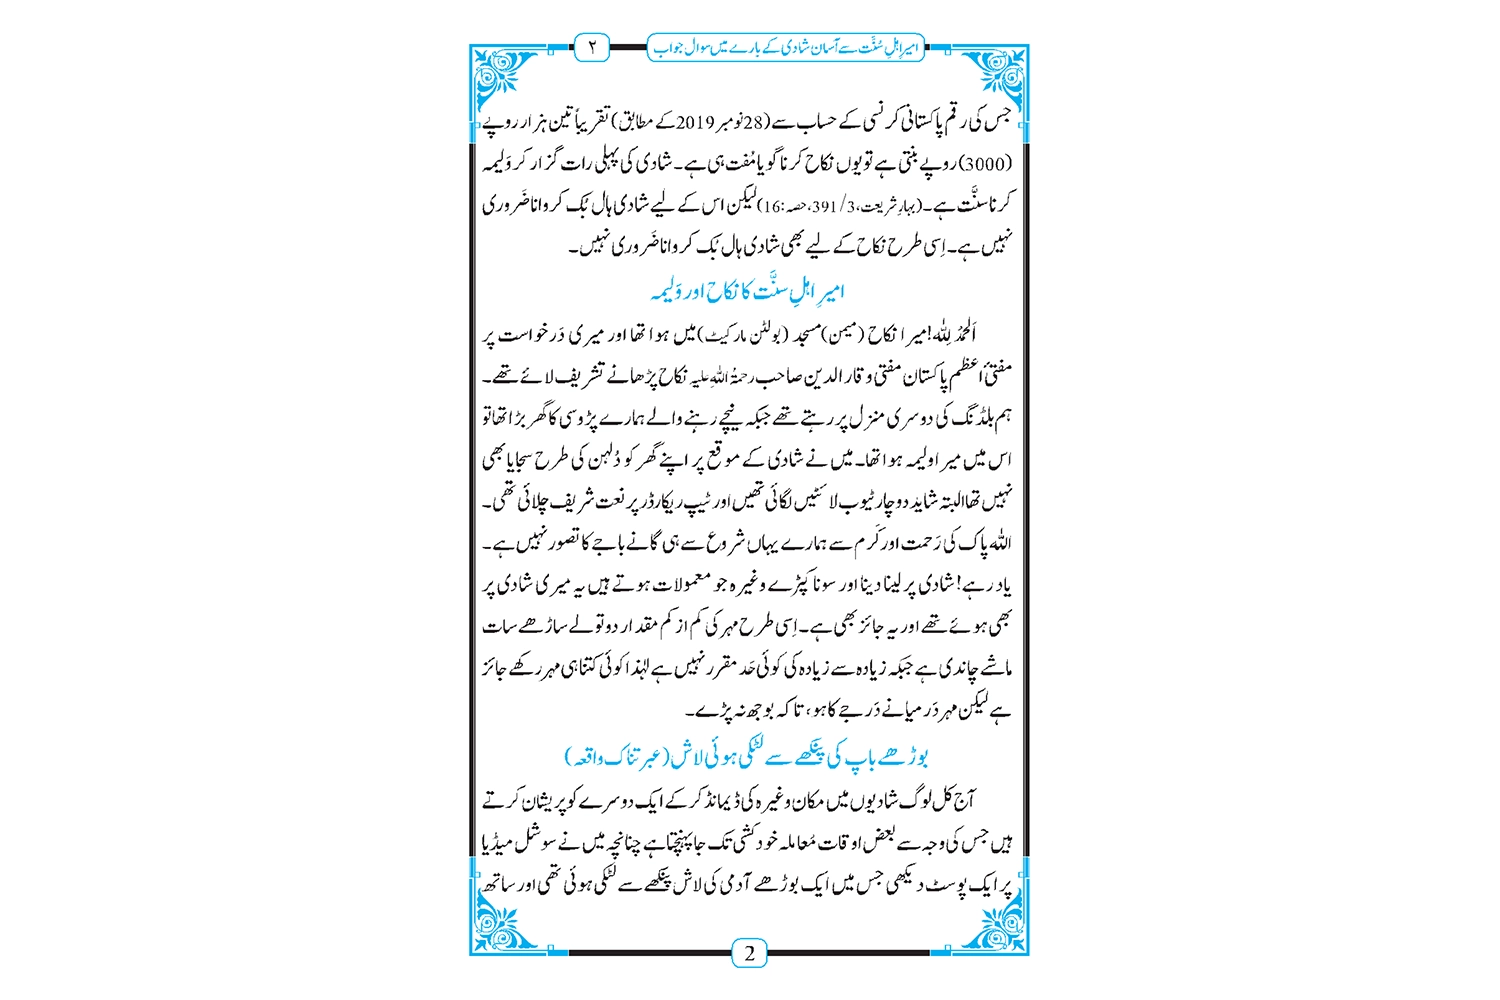 امیرِ اہلِ سُنَّت سے آسان شادی کے بارے میں سوال جواب
۲
جس کی رقم پاکستانی کرنسی کے حساب سے (28 نومبر 2019 کے مطابق) تقریباً تین ہزار روپے
(3000) روپے بنتی ہے تو یوں نکاح کرنا گویا مُفت ہی ہے۔ شادی کی پہلی رات گزار کر وَلیمہ
کرنا سنَّت ہے۔ (بہارِ شریعت، 3/391، حصہ:16) لیکن اس کے لیے شادی ہال بُک کروانا ضَروری
نہیں ہے۔ اِسی طرح نکاح کے لیے بھی شادی ہال بُک کروانا ضَروری نہیں۔
امیرِ اہلِ سنَّت کا نکاح اور وَلیمہ
اَلحمدُ لِلّٰہ! میرا نکاح (میمن) مسجد (بولٹن مارکیٹ) میں ہوا تھا اور میری دَرخواست پر
مفتیٔ اعظم پاکستان مفتی وقارالدین صاحب رحمۃُ اللہِ علیہ نکاح پڑھانے تشریف لائے تھے۔
ہم بلڈنگ کی دوسری منزل پر رہتے تھے جبکہ نیچے رہنے والے ہمارے پڑوسی کا گھر بڑا تھا تو
اس میں میرا ولیمہ ہوا تھا۔ میں نے شادی کے موقع پر اپنے گھر کو دُلہن کی طرح سجایا بھی
نہیں تھا البتہ شاید دو چار ٹیوب لائٹیں لگائی تھیں اور ٹیپ ریکارڈر پر نعت شریف چلائی تھی۔
اللہ پاک کی رَحمت اور کَرم سے ہمارے یہاں شروع سے ہی گانے باجے کا تصور نہیں ہے۔
یاد رہے! شادی پر لینا دینا اور سونا کپڑے وغیرہ جو معمولات ہوتے ہیں یہ میری شادی پر
بھی ہوئے تھے اور یہ جائز بھی ہے۔ اِسی طرح مہر کی کم از کم مقدار دو تولے ساڑھے سات
ماشے چاندی ہے جبکہ زیادہ سے زیادہ کی کوئی حَد مقرر نہیں ہے لہٰذا کوئی کتنا ہی مہر رکھے جائز
ہے لیکن مہر دَرمیانے دَرجے کا ہو، تاکہ بوجھ نہ پڑے۔
بوڑھے باپ کی پنکھے سے لٹکی ہوئی لاش (عبرتناک واقعہ)
آج کل لوگ شادیوں میں مکان وغیرہ کی ڈیمانڈ کرکے ایک دوسرے کو پریشان کرتے
ہیں جس کی وجہ سے بعض اوقات مُعاملہ خودکشی تک جا پہنچتا ہے چنانچہ میں نے سوشل میڈیا
پر ایک پوسٹ دیکھی جس میں ایک بوڑھے آدمی کی لاش پنکھے سے لٹکی ہوئی تھی اور ساتھ
2